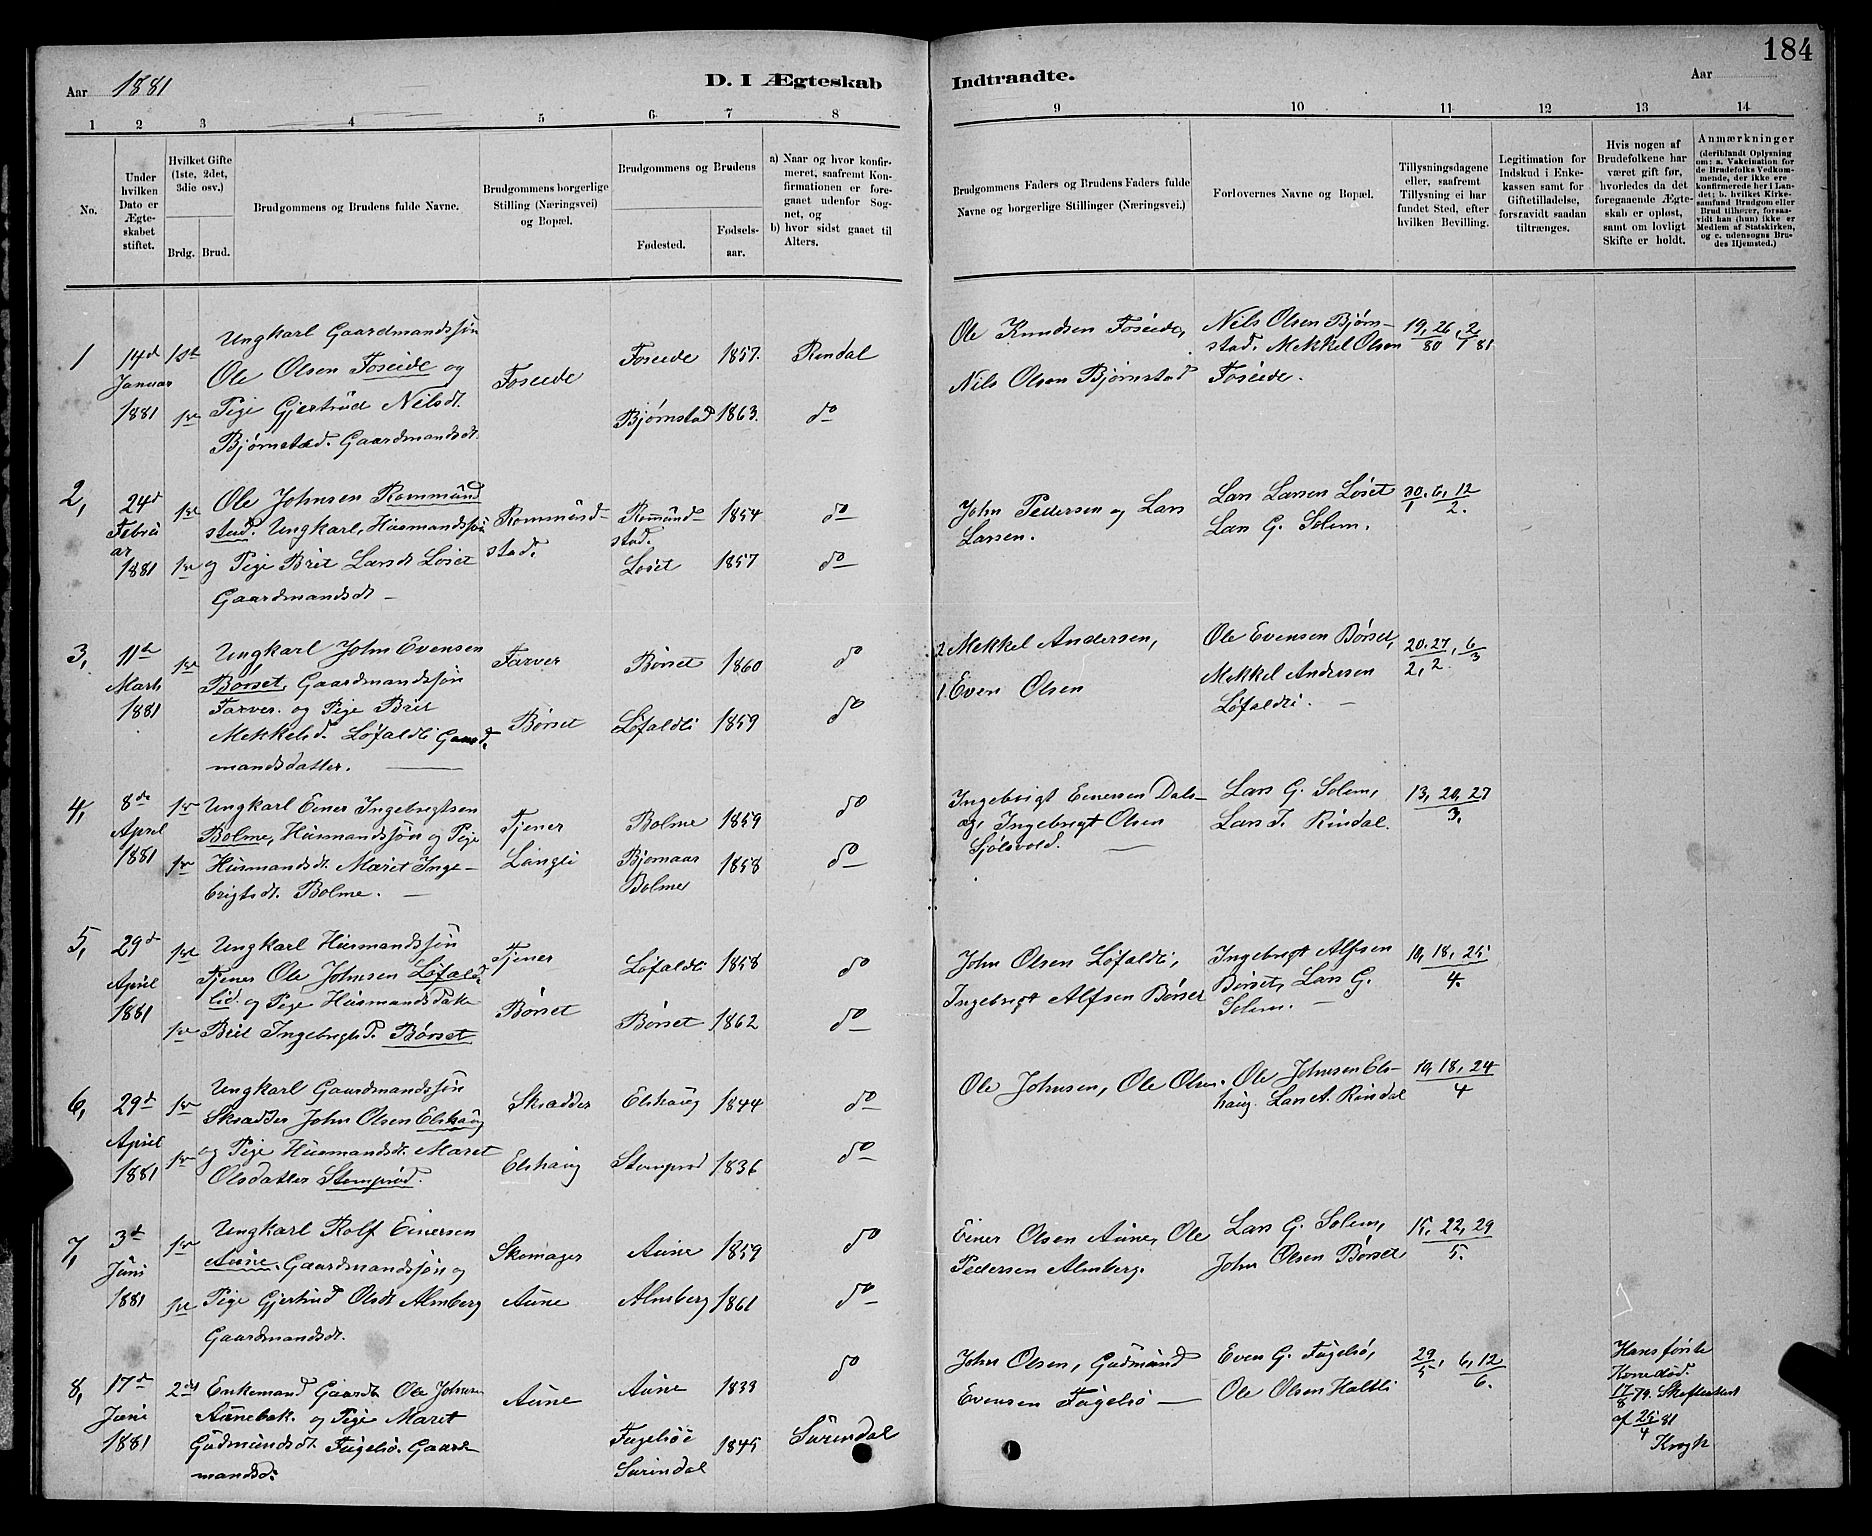 184
Aar 1881
D. I Ægteskab
Indtraadte.
Aar
1 2 3 4 5 6 7 8
9 10 11 12 13 14
No.
Under hvilken Dato er Ægteskabet stiftet.
Hvilket Gifte (1ste, 2det, 3die osv.)
Brdg. Brud.
Brudgommens og Brudens fulde Navne.
Brudgommens borgerlige Stilling (Næringsvei) og Bopæl.
Brudgommens og Brudens
Fødested.
Fødselsaar.
a) Naar og hvor konfirmeret, saafremt Konfirmationen er foregaaet udenfor Sognet, og
b) hvor sidst gaaet til Alters.
Brudgommens Faders og Brudens Faders fulde Navne og borgerlige Stillinger (Næringsvei.)
Forlovernes Navne og Bopæl.
Tillysningsdagene eller, saafremt Tillysning ei har fundet Sted, efter hvilken Bevilling.
Legitimation for Indskud i Enkekassen samt for Giftetilladelse, forsaavidt saadan tiltrænges.
Hvis nogen af Brudefolkene har været gift før, hvorledes da det foregaaende Ægteskab er opløst, samt om lovligt Skifte er holdt.
Anmærkninger
(deriblandt Oplysning om: a. Vakcination for de Brudefolks Vedkommende, der ikke ere konfirmerede her i Landet; b. hvilket Kirkesamfund Brudgom eller Brud tilhører, forsaavidt han (hun) ikke er Medlem af Statskirken, og c. udensogns Brudes Hjemsted.)
1 14d Januar 1881 1ste 1ste
Ungkarl Gaardmandssøn
Ole Olsen Foseide og
Pige Gjertrud Nilsdt.
Bjørnstad. Gaardmandsdt.
Foseide
Foseide 1857. Rindal
Bjørnstad 1863. do
Ole Knudsen Foseide,
Nils Olsen Bjørnstad
Nils Olsen Bjørn-
stad. Mekkel Olsen
Foseide.
19, 26/80, 2/1 81
2, 24d Februar 1881 1ste 1ste
Ole Johnsen Rommund
stad. Ungkarl, Husmandssøn
og Pige Brit Larsdt Løset
Gaardmandsdt –
Rommund-
stad.
Romund-
stad. 1854 do
Løset 1857 do
John Pedersen og Lars
Larsen.
Lars Larsen Løset
Lars G. Solem.
30/1, 6, 12/2.
3, 11te Marts 1881 1ste
Ungkarl John Evensen
Børset, Gaardmandssøn
Farver. og Pige Brit
Mekkelsd. Løfaldli Gaard-
mandsdatter.
Farver
Børset
Børset 1860 do
Løfaldli 1859 do
2 Mekkel Andersen,
1 Even Olsen
Ole Evensen Børset,
Mekkel Andersen
Løfaldli. –
20. 27/2, 2, 6/3
4, 8de April 1881 1ste 1ste
Ungkarl Einer Ingebrigtsen
Bolme, Husmandssøn og Pige
Husmandsdt. Marit Inge-
brigtsdt. Bolme. –
Tjener
Langli
Bolme 1859 do
Bjørnaas
Bolme 1858 do
Ingebrigt Einersen Dals-
og, Ingebrigt Olsen
Sjølsvold. –
Lars G. Solem,
Lars T. Rindal.
13, 20, 27/3.
5, 29d April 1881 1ste 1ste
Ungkarl Husmandssøn
Tjener Ole Johnsen Løfald-
lid. og Pige Husmandsdatte
Brit Ingebrigtsd. Børset
Tjener
Børset
Løfaldli 1858 do
Børset 1862 do
John Olsen Løfaldli,
Ingebrigt Alfsen Børset
Ingebrigt Alfsen
Børset, Lars G.
Solem. –
10, 18, 25/4.
6, 29d April 1881 1ste 1ste
Ungkarl Gaardmandssøn
Skrædder John Olsen Elshaug
og Pige Husmandsdt. Maret
Olsdatter Stomprød.
Skrædder
Elshaug
Elshaug 1844 do
Stomprød 1836 do
Ole Johnsen, Ole Olsen.
Ole Johnsen Els-
haug. Lars T. Rindal
10, 18, 24/4
7, 3d Juni 1881 1ste 1ste
Ungkarl Rolf Einersen
Aune, Gaardmandssøn og
Pige Gjertrud Olsdt Almberg
Gaardmandsdt.
Skomager
Aune
Aune 1859 do
Almberg 1861 do
Einer Olsen Aune, Ole
Pedersen Almberg.
Lars G. Solem,
John Olsen Børset
15, 22, 29/5.
8, 17d Juni 1881 2det
Enkemand Gaardt. Ole Johnsen
Aunebak. og Pige Maret
Gudmundsdt. Fugelsø. Gaard
mandsd.
Aune
Aune 1839 do
Fugelsøe
Surindal 1845 Surindal
John Olsen, Gudmund
Evensen Fugelsø –
Even G. Fugelsø,
Ole Olsen Haltli
29/5, 6, 12/6.
Hans første
Kone død.
17/8 79. Skifteattest
af 25/4 81
Krogh